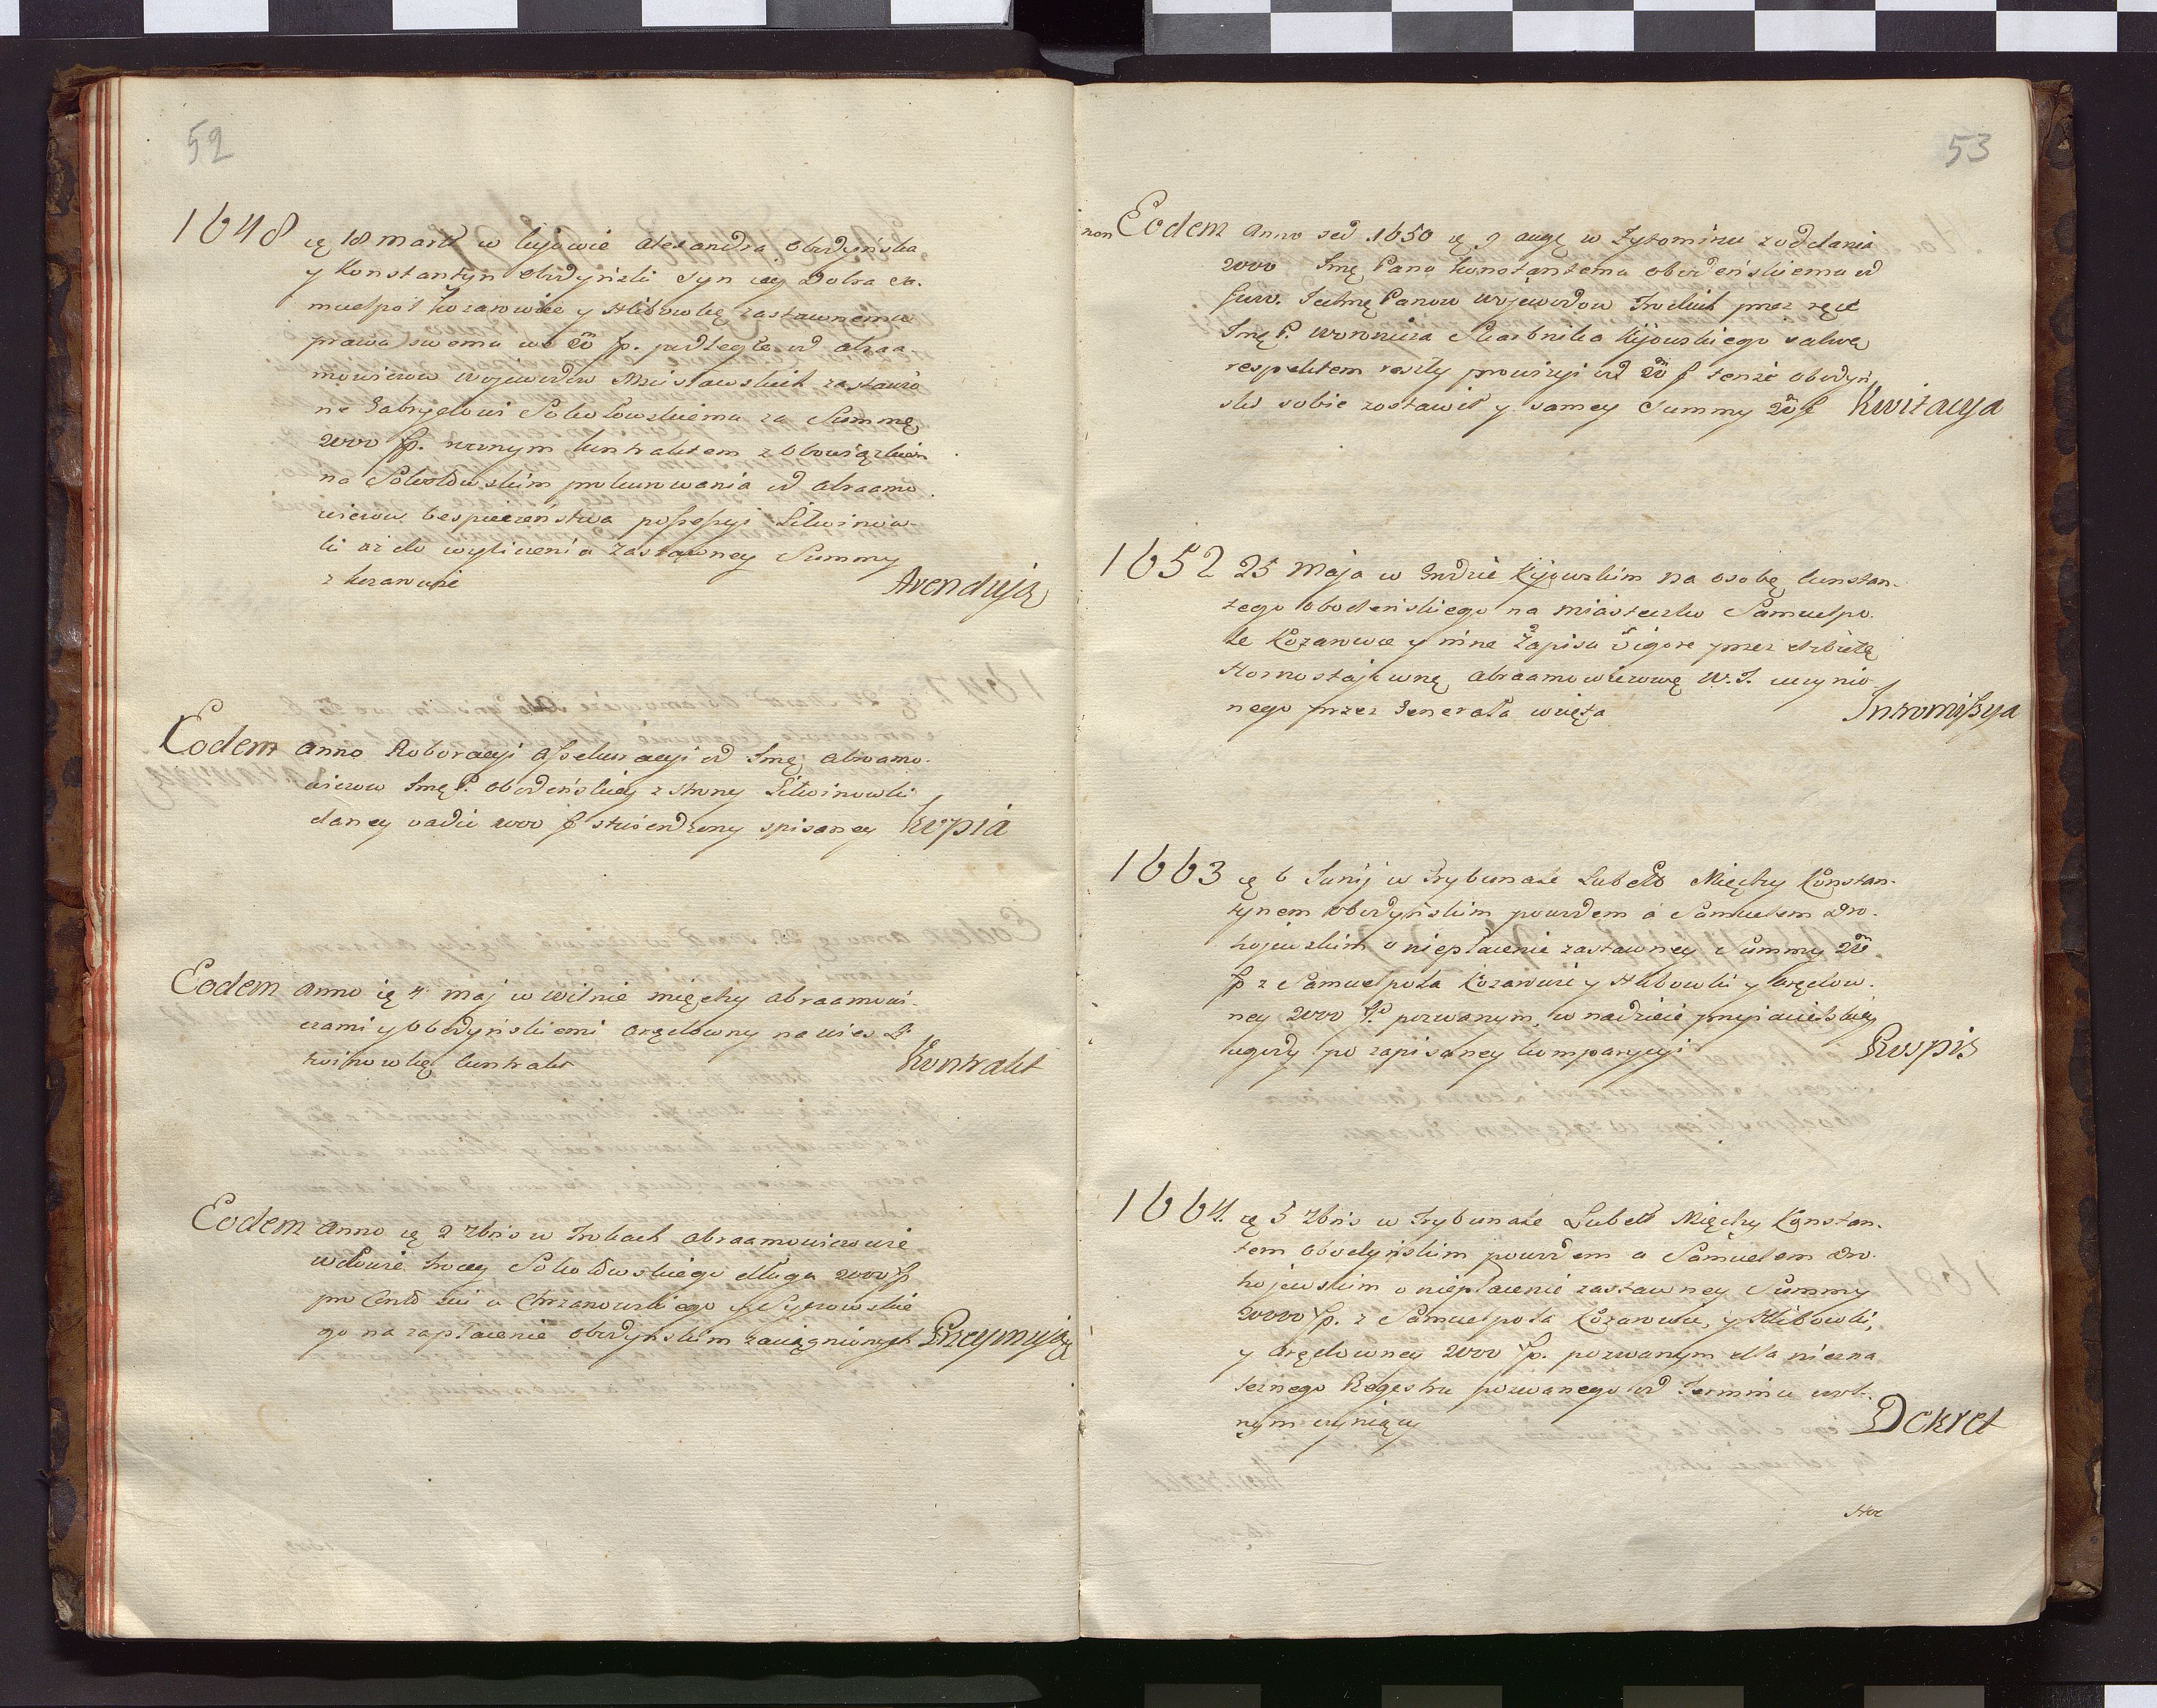 52
1648 ię 18 marti w kijowie Alexandra Obodyńska
y Konstantyn Obodyński Syn iey Dobra Sa.
muelpol Kozarowice y Hlibowkę zastawnemu
prawu swemu we 20 fp. podległe od Abraa
mowiczow Wojewodow Mscisławskich zastawio
ne Gabryelowi Sokołowskiemu za Summę
2000 fp. rocznym kontraktem z obowiązkiem
na Sokołowskim prokurowania od Abraamo
wiczow bespieczeństwa possessyi Litwinow-
ki aż do wyliczenia zastawney Summy
z kozarowic Arendują
Eodem anno Roboracyi Assekuracyi od Jmę Abraamo-
wiczow Jmę P. Obodeńskiey z strony Litwinowki
daney vadii 2000 f stwierdzony spisaney Kopia
Eodem anno ię 4 maj w Wilnie między Abraamowi-
czami y Obodyńskiemi arędowny na wies Li
twinowkę kontrakt Kontrakt
Eodem anno ię 2 7bris w Trokach Abraamowiczowie
wdowie trocey Sokołowskiego długu 2000 fp
go na zapłacenie Obodyńskim zaciągnionych Przeymują
53
non Eodem anno sed 1650 ię 9 augę w Żytomirzu z oddania
2000 Jmę Panu Konstantemu Obodeńskiemu od
Jchmę Panow Wojewodow Trockich przez ręce
Jmę P. Woronicza Skarbnika Kijowskiego salwę
respektem reszty prowizyi od 20 f tenże Obodyń
ski sobie zostawił y samey Summy 20 f Kwitacya
1652 25 Maja w Grodzie Kijowskim na osobę konstan-
tego Obodeńskiego na miasteczko Samuelpo.
le Kozarowce y inne Zapisu vigore przez Elzbietę
Hornostajownę Abraamowiczowę W. T. uczynio
nego przez Generała wzięta Intromissya
1663 ię 6 Junij w Trybunale Lubell Między Konstan-
tynem Obodyńskim powodem a Samuelem Dro.
hojewskim o niepłacenie zastawney Summy 20
fp z Samuelpola Kozarowic y Hlibowki y arędow.
ney 2000 fp pozwanym, w nadzieię przyjacielskiey
ugody po zapisaney komparycyi Rospis
1664. ię 5 7bris w Trybunale Lubell Między Konstan.
tem Obodyńskim powodem a Samuelem Dro.
hojewskim o niepłacenie zastawney Summy
20000 fp. z Samuelpola Kozarowic, y Hlibowki,
y arędowney 2000 fp. pozwanym dla niezna
leznego Regestru pozwanego od Terminu wol.
nym czyniący Dekret